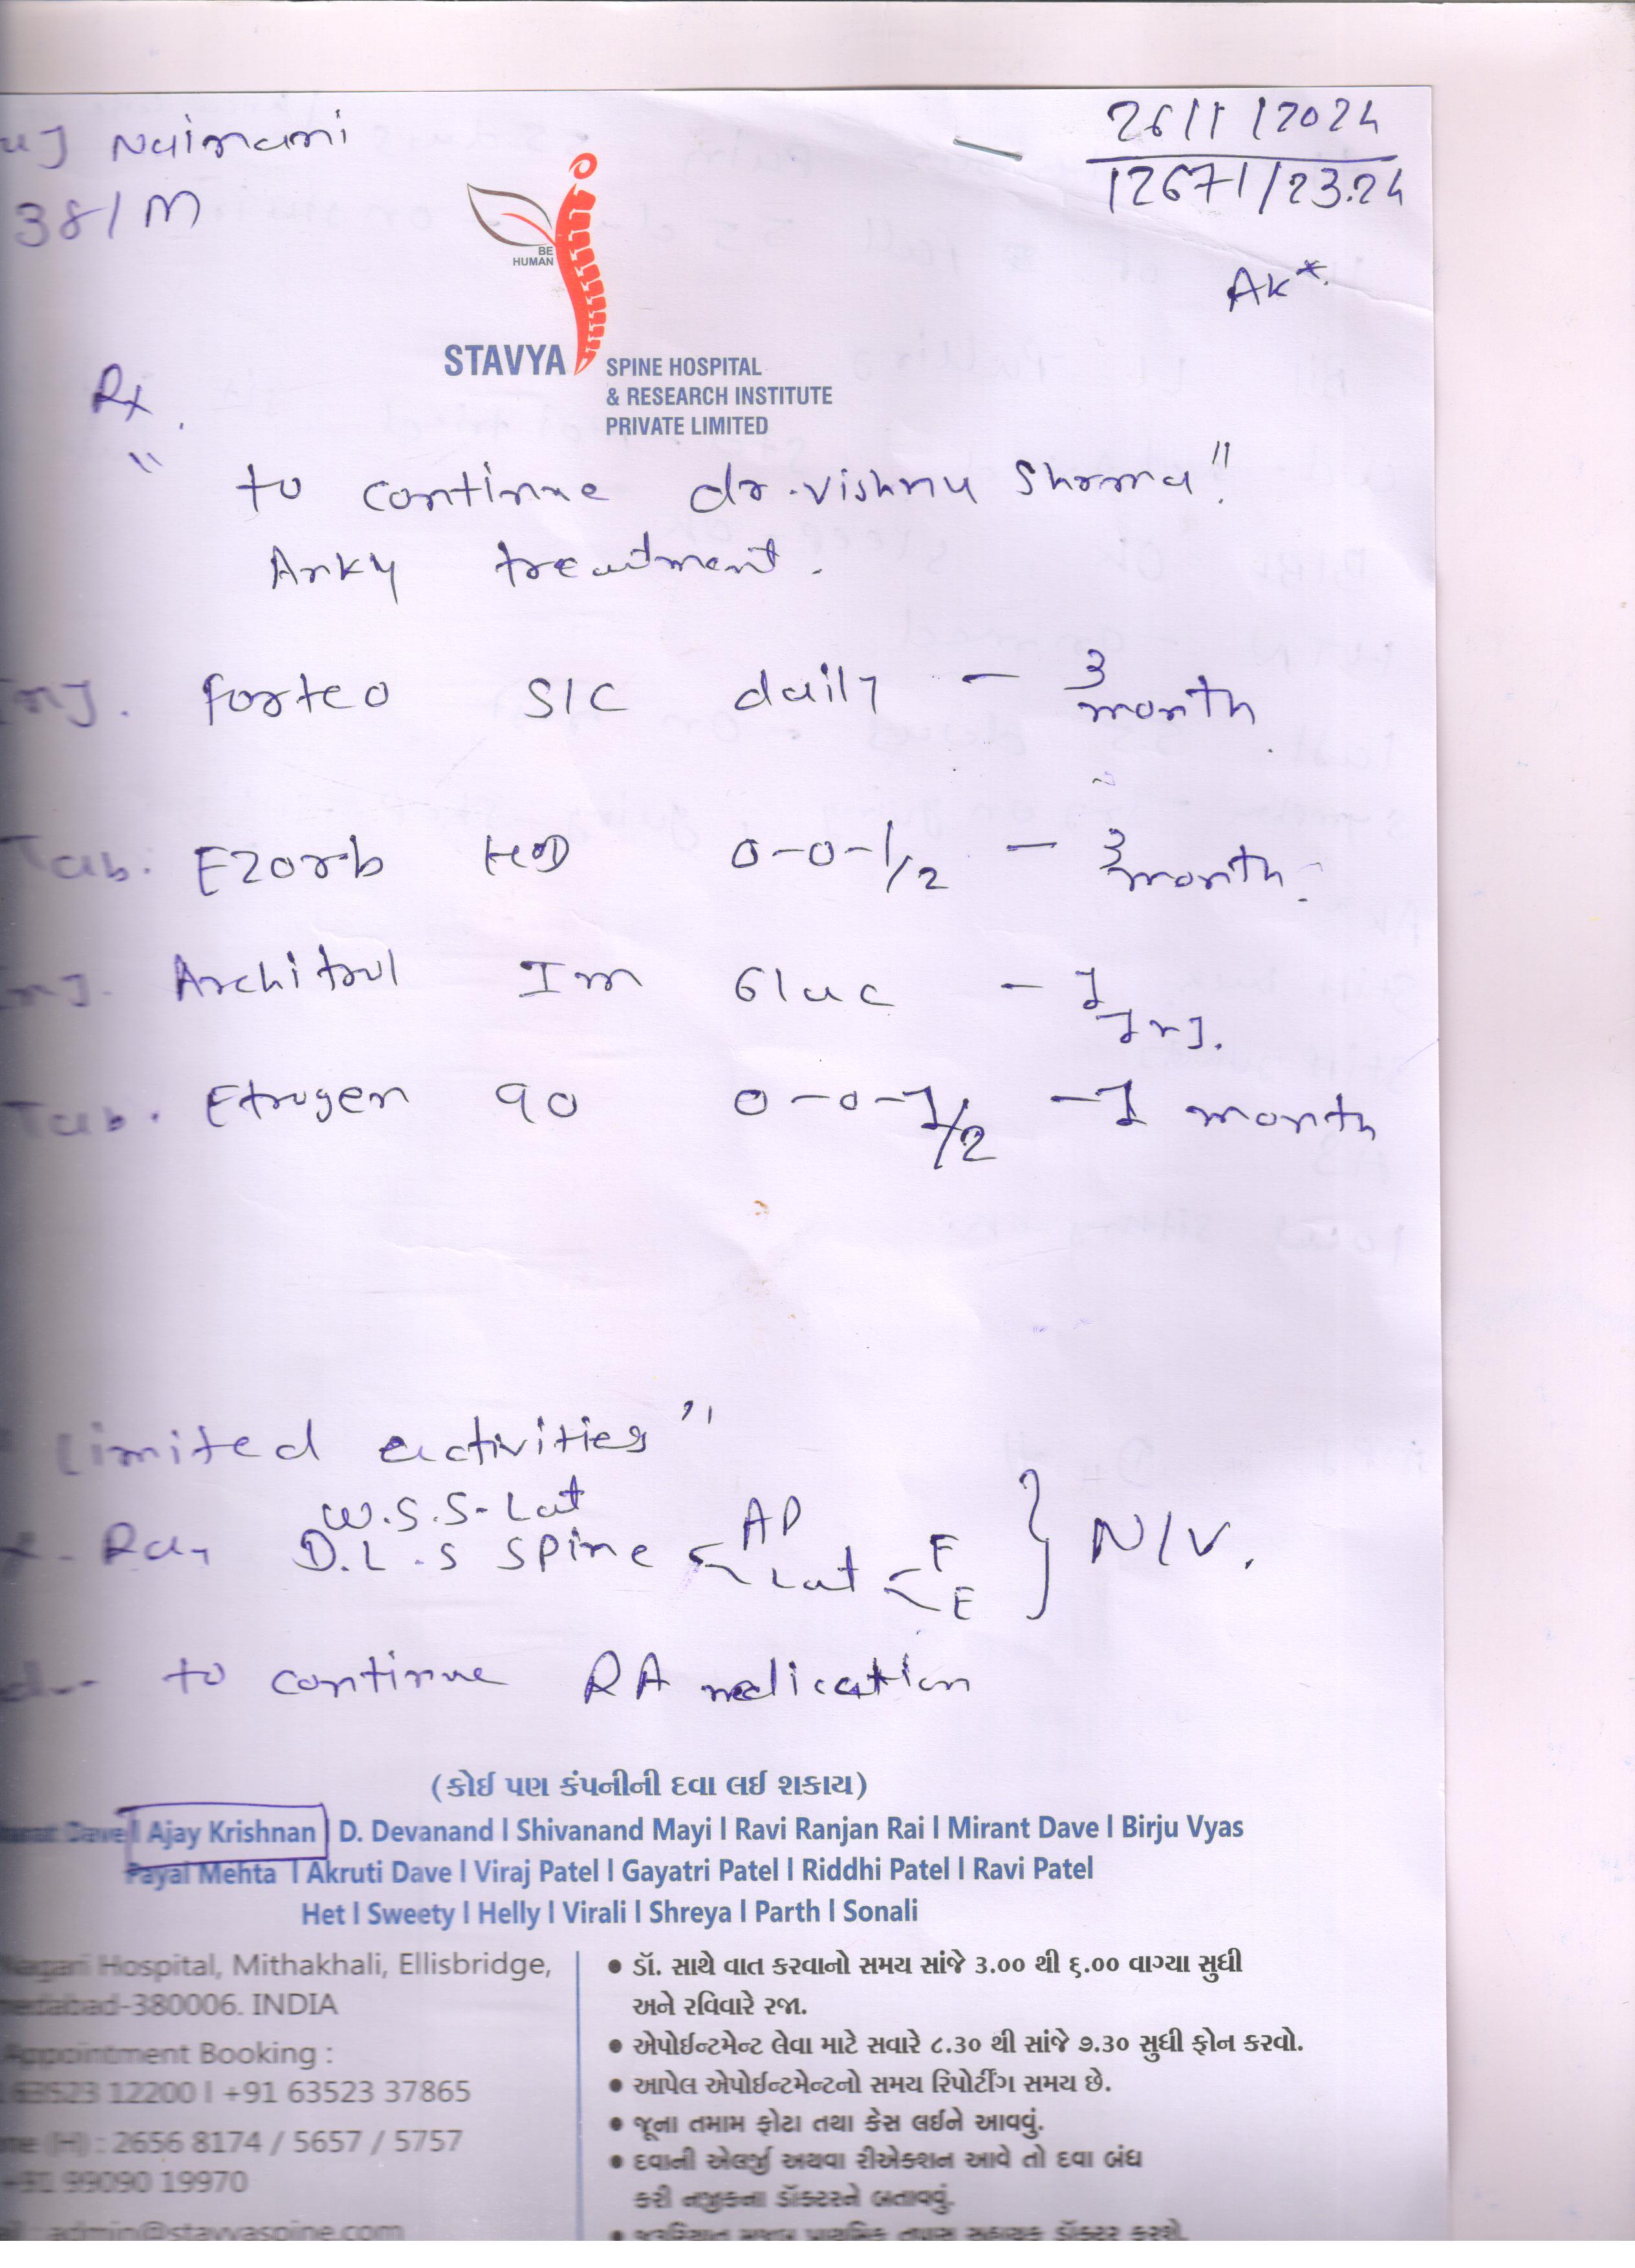 Naimani
38/M
26/1/2024
12671/23.24
AK*
BE
HUMAN
STAVYA SPINE HOSPITAL
& RESEARCH INSTITUTE
PRIVATE LIMITED
Rx
" to continue dr. Vishnu Sharma"
Anky treatment.
Inj. Forteo S/C daily - 3 month
Tab. Ezorb HD 0-0-1/2 - 3 month
Inj. Architol Im 6lac - 1 Inj.
Tab. Etrogen 90 0-0-1/2 - 1 month
Limited activities"
W.S.S-Lat
X-Ray D.L.S Spine < AP Lat < F E } N/V.
to continue RA medication
(કોઈ પણ કંપનીની દવા લઈ શકાય)
Dave I Ajay Krishnan I D. Devanand I Shivanand Mayi I Ravi Ranjan Rai I Mirant Dave I Birju Vyas
Payal Mehta I Akruti Dave I Viraj Patel I Gayatri Patel I Riddhi Patel I Ravi Patel
Het I Sweety I Helly I Virali I Shreya I Parth I Sonali
Hospital, Mithakhali, Ellisbridge,
380006. INDIA
Appointment Booking :
63523 12200 I +91 63523 37865
(H) : 2656 8174 / 5657 / 5757
+91 99090 19970
admin@stavyaspine.com
• ડૉ. સાથે વાત કરવાનો સમય સાંજે ૩.૦૦ થી ૬.૦૦ વાગ્યા સુધી
અને રવિવારે રજા.
• એપોઈન્ટમેન્ટ લેવા માટે સવારે ૮.૩૦ થી સાંજે ૭.૩૦ સુધી ફોન કરવો.
• આપેલ એપોઈન્ટમેન્ટનો સમય રિપોર્ટીંગ સમય છે.
• જૂના તમામ ફોટા તથા કેસ લઈને આવવું.
• દવાની એલર્જી અથવા રીએક્શન આવે તો દવા બંધ
કરી નજીકના ડૉક્ટરને બતાવવું.